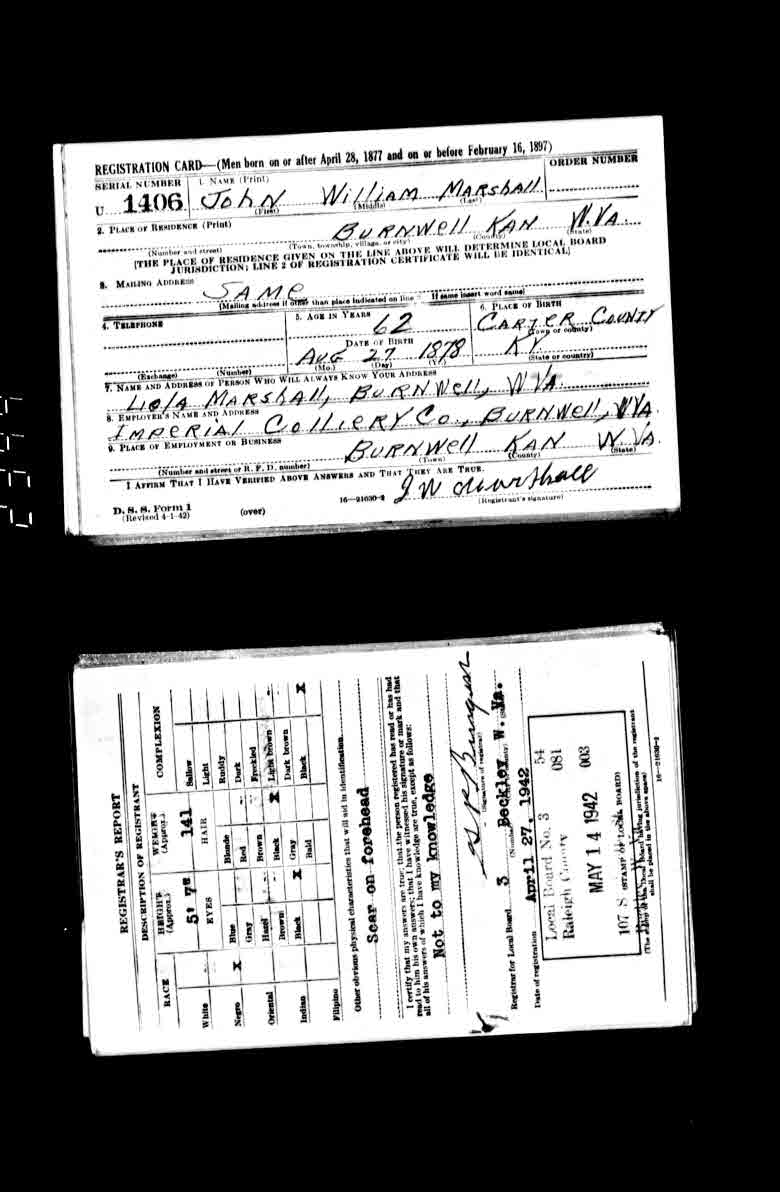 REGISTRATION CARD—(Men born on or after April 28, 1877 and on or before February 16, 1897)
SERIAL NUMBER
1. NAME (Print)
ORDER NUMBER
U 1406
John William Marshall
(First) (Middle) (Last)
2. PLACE OF RESIDENCE (Print)
Burnwell Kan W.Va.
(Number and street) (Town, township, village, or city) (County) (State)
[THE PLACE OF RESIDENCE GIVEN ON THE LINE ABOVE WILL DETERMINE LOCAL BOARD
JURISDICTION; LINE 2 OF REGISTRATION CERTIFICATE WILL BE IDENTICAL]
3. MAILING ADDRESS
Same
[Mailing address if other than place indicated on line 2 If same insert word same]
4. TELEPHONE
5. AGE IN YEARS
62
6. PLACE OF BIRTH
Carter County
(Town or county)
DATE OF BIRTH
Aug 27 1878
Ky
(Exchange) (Number)
(Mo.) (Day)
(State or country)
7. NAME AND ADDRESS OF PERSON WHO WILL ALWAYS KNOW YOUR ADDRESS
Marshall, Burnwell, W Va.
8. EMPLOYER'S NAME AND ADDRESS
Imperial Colliery Co., Burnwell, W Va.
9. PLACE OF EMPLOYMENT OR BUSINESS
Burnwell Kan W.Va.
(Number and street or R. F. D. number) (Town) (County) (State)
I AFFIRM THAT I HAVE VERIFIED ABOVE ANSWERS AND THAT THEY ARE TRUE.
D. S. S. Form 1
(Revised 4-1-42)
(over)
16—21630-2
J W Marshall
(Registrant's signature)
REGISTRAR'S REPORT
DESCRIPTION OF REGISTRANT
RACE
HEIGHT (Approx.)
WEIGHT (Approx.)
COMPLEXION
5' 7"
141
EYES
HAIR
White
Negro X
Oriental
Indian
Filipino
Blue
Gray
Hazel
Brown
Black X
Blonde
Red
Brown
Black X
Gray
Bald
Sallow
Light
Ruddy
Dark
Freckled
Light brown
Dark brown
Black X
Other obvious physical characteristics that will aid in identification
Scar on forehead
I certify that my answers are true; that the person registered has read or has had
read to him his own answers; that I have witnessed his signature or mark and that
all of his answers of which I have knowledge are true, except as follows:
Not to my knowledge
(Signature of registrar)
Registrar for Local Board 3 Beckley W. Va.
Date of registration April 27, 1942
Local Board No. 3 54
Raleigh County 081
MAY 14 1942 003
107 S
(STAMP OF LOCAL BOARD)
(The stamp of the Local Board having jurisdiction of the registrant
shall be placed in the above space)
16—21630-2